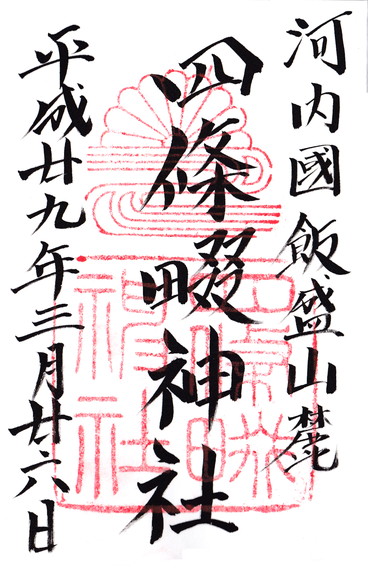 河内國飯盛山麓
四條畷神社
平成廿九年三月廿六日